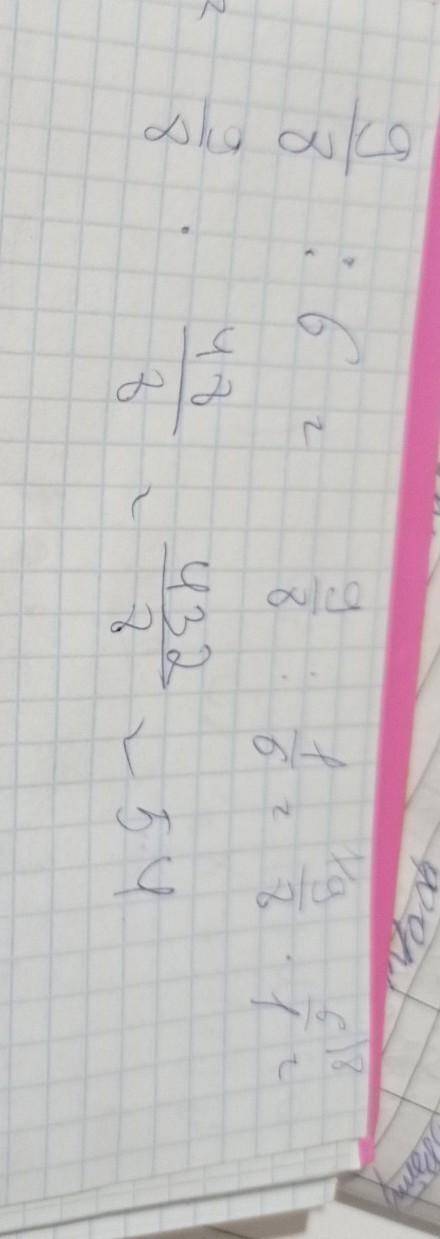 9/8 : 6 = 9/8 : 1/6 = 9/8 · 6/1 =
9/8 · 48/8 = 432/8 = 54